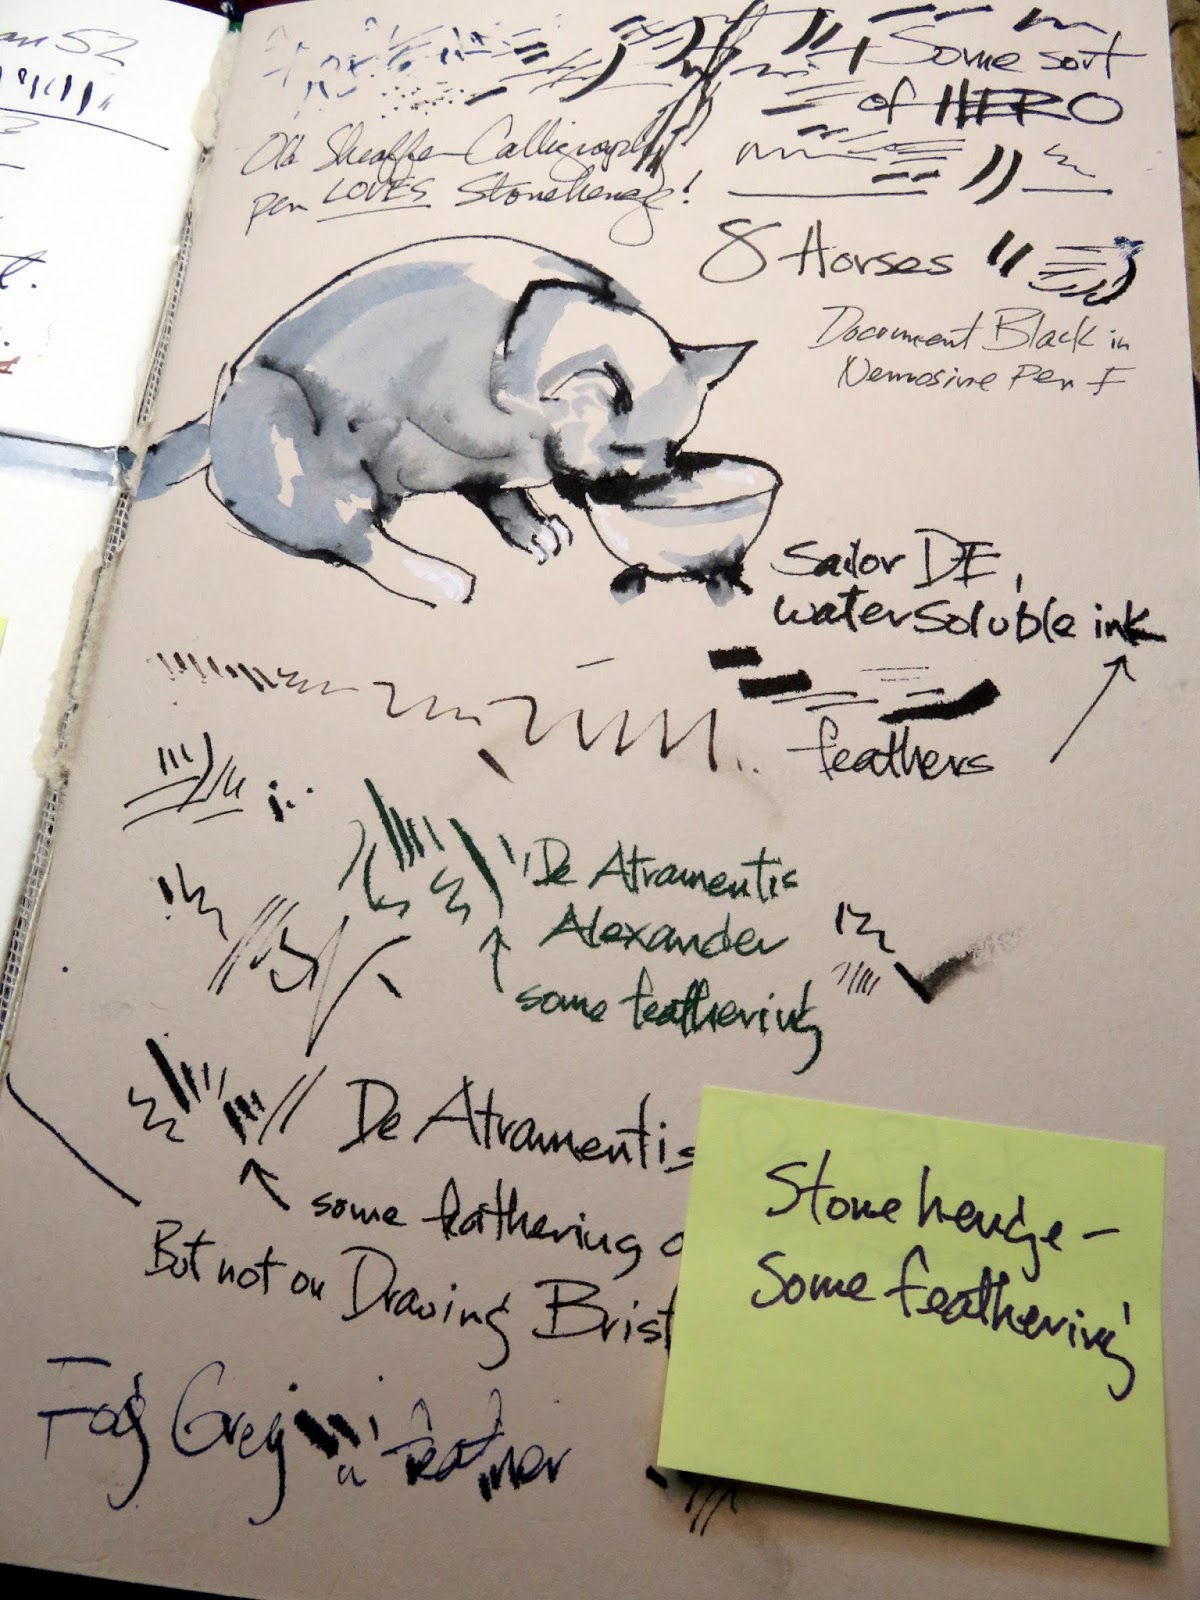 an 52
t.
Some sort
of HERO
Old Sheaffer Calligraphy
pen LOVES Stonehenge!
8 Horses
Document Black in
Nemosine Pen F
Sailor DE,
watersoluble ink
feathers
De Atramentis
Alexander
some feathering
De Atramentis
some feathering
But not on Drawing Brist
Fog Grey feather
Stonehenge -
Some feathering